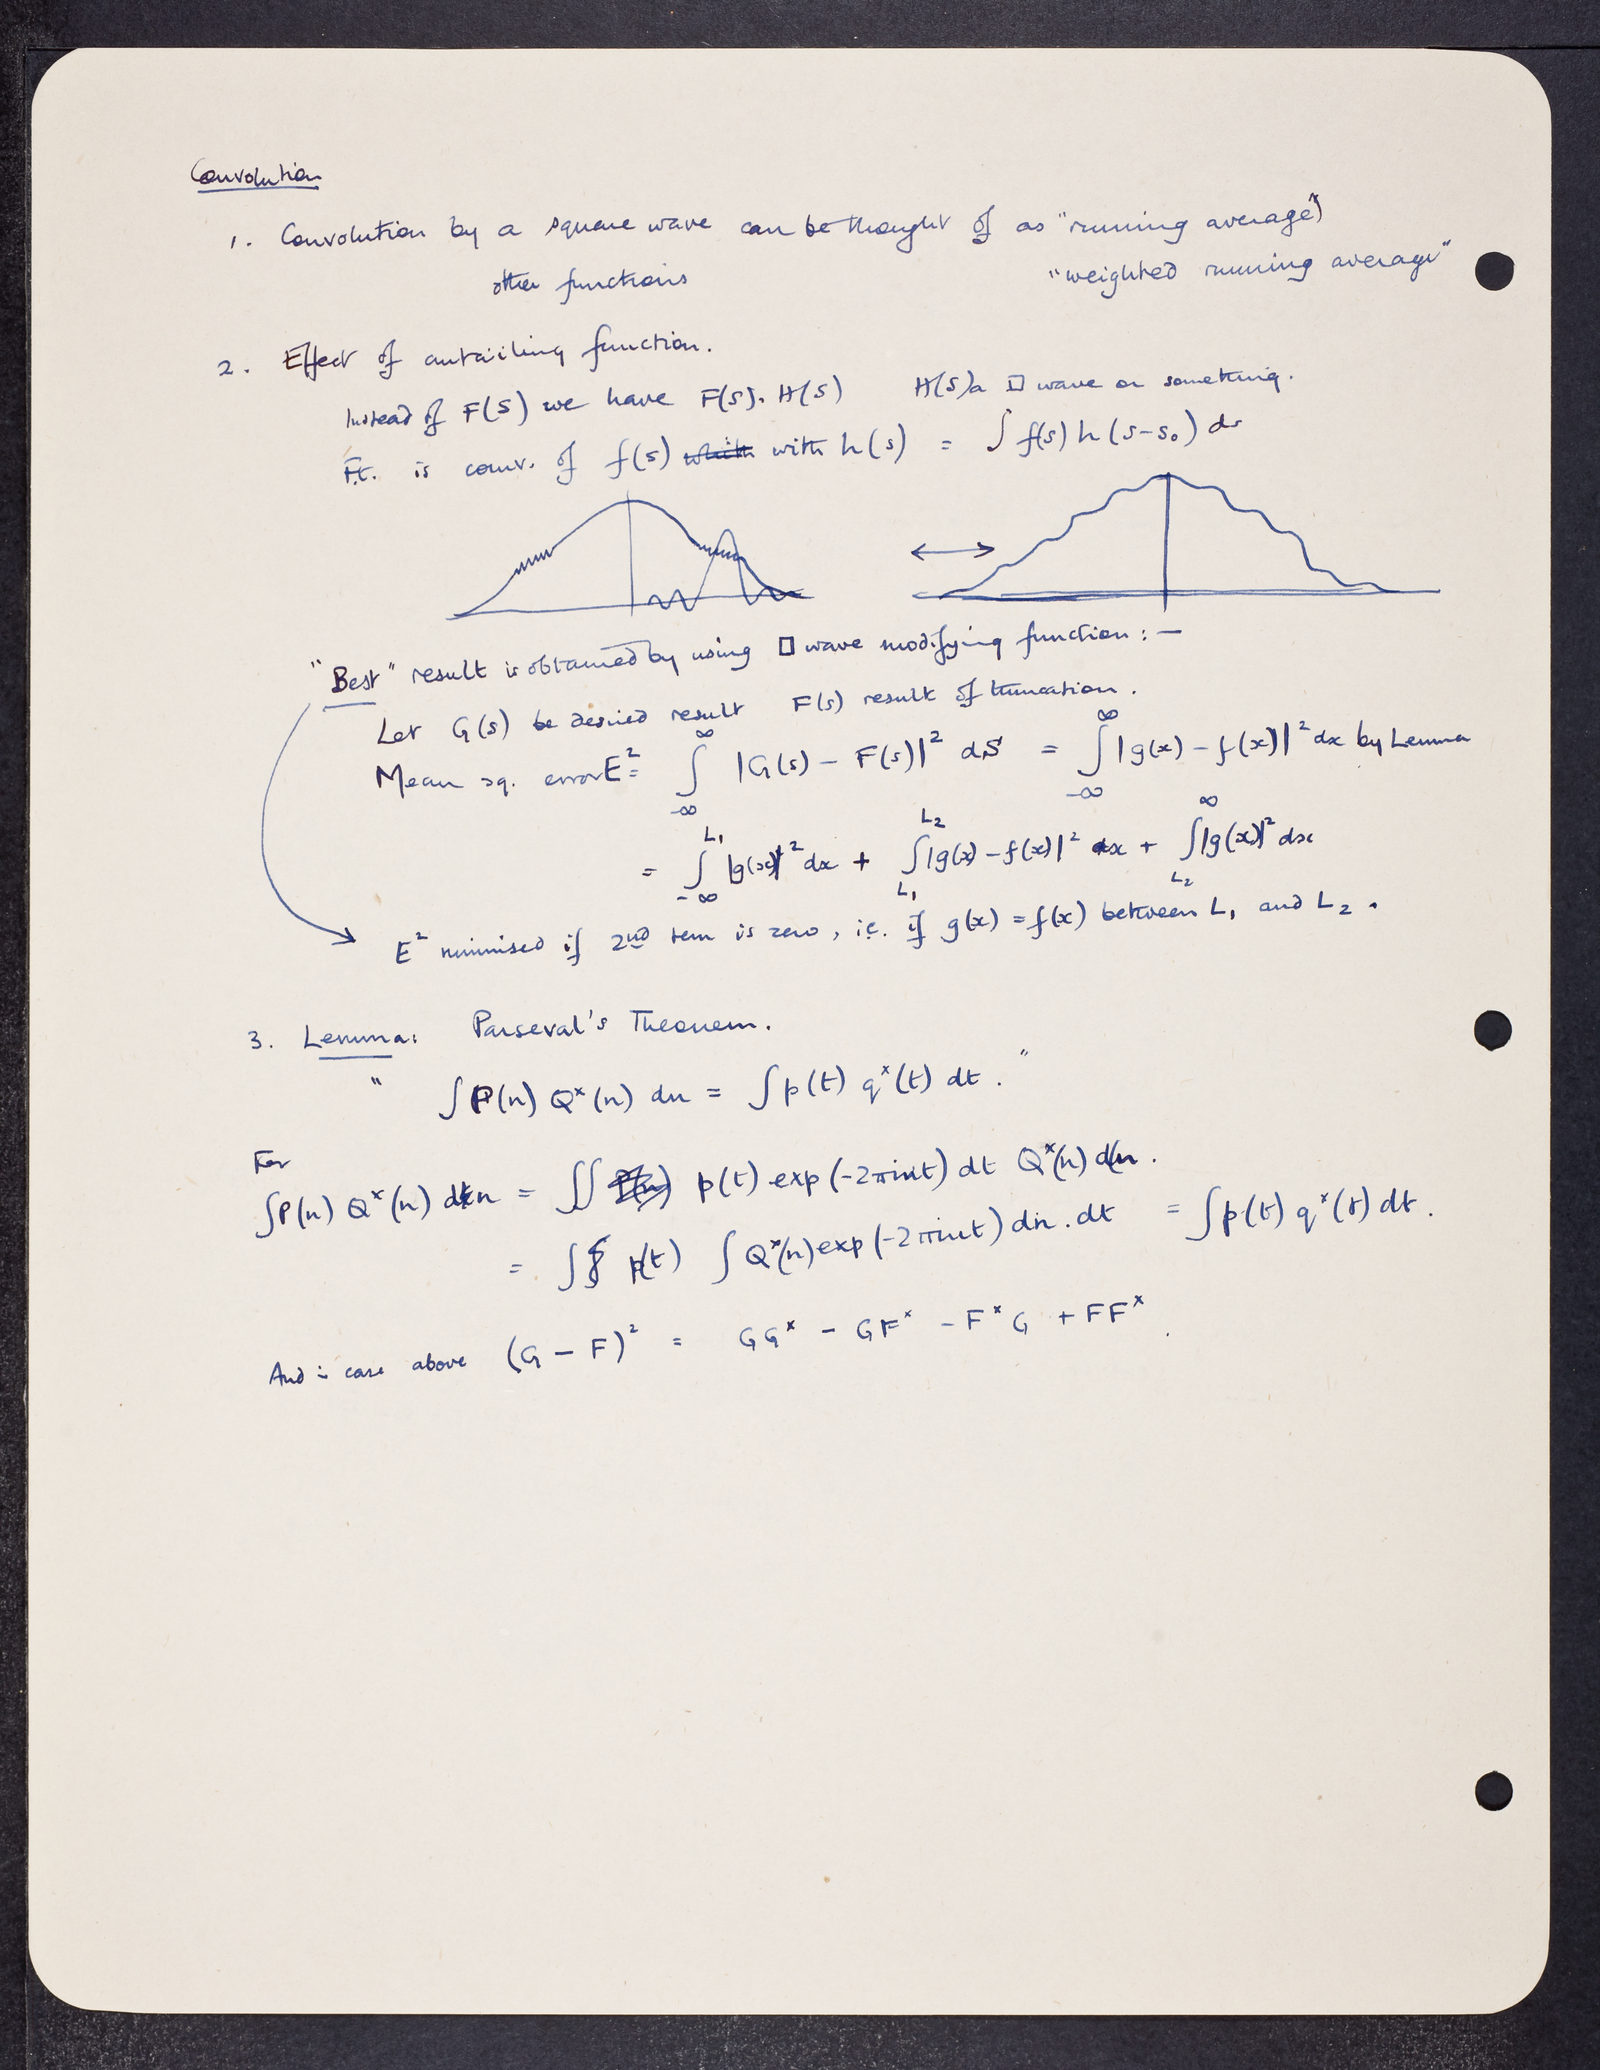 Convolution
1. Convolution by a square wave can be thought of as "running average"
other functions "weighted running average"
2. Effect of curtailing function.
Instead of F(S) we have F(S). H(S) H(S) a □ wave or something.
F.t. is conv. of f(s) with h(s) = ∫ f(s) h (s-s₀) ds
"Best" result is obtained by using □ wave modifying function : —
Let G(s) be desired result F(s) result of truncation.
Mean sq. error E² = ∫_{-∞}^{∞} |G(s) - F(s)|² dS = ∫_{-∞}^{∞} |g(x) - f(x)|² dx by Lemma
= ∫_{-∞}^{L₁} |g(x)|² dx + ∫_{L₁}^{L₂} |g(x) - f(x)|² dx + ∫_{L₂}^{∞} |g(x)|² dx
E² minimised if 2nd term is zero, i.e. if g(x) = f(x) between L₁ and L₂.
3. Lemma: Parseval's Theorem.
" ∫ P(n) Qˣ(n) dn = ∫ p(t) qˣ(t) dt. "
For
∫ P(n) Qˣ(n) dn = ∫∫ p(t) exp(-2πint) dt Qˣ(n) dn.
= ∫ p(t) ∫ Qˣ(n) exp(-2πint) dn. dt = ∫ p(t) qˣ(t) dt.
And in case above (G - F)² = GGˣ - GFˣ - FˣG + FFˣ.